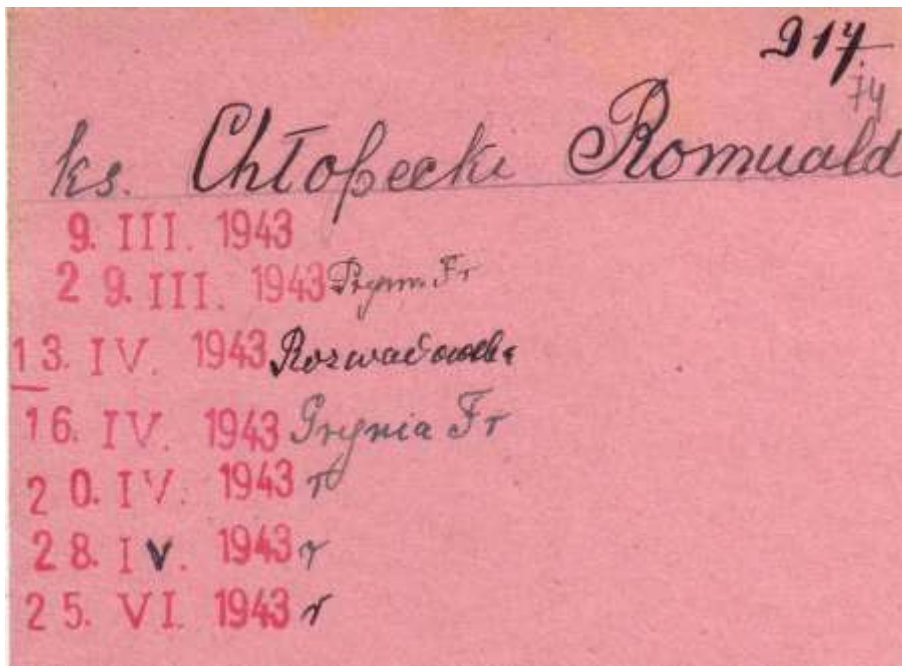 917
74
ks. Chłopecki Romuald
9. III. 1943
2 9. III. 1943 Fr
13. IV. 1943 Rozwadowska
16. IV. 1943 Grynia Fr
2 0. IV. 1943 r
2 8. IV. 1943 r
2 5. VI. 1943 r